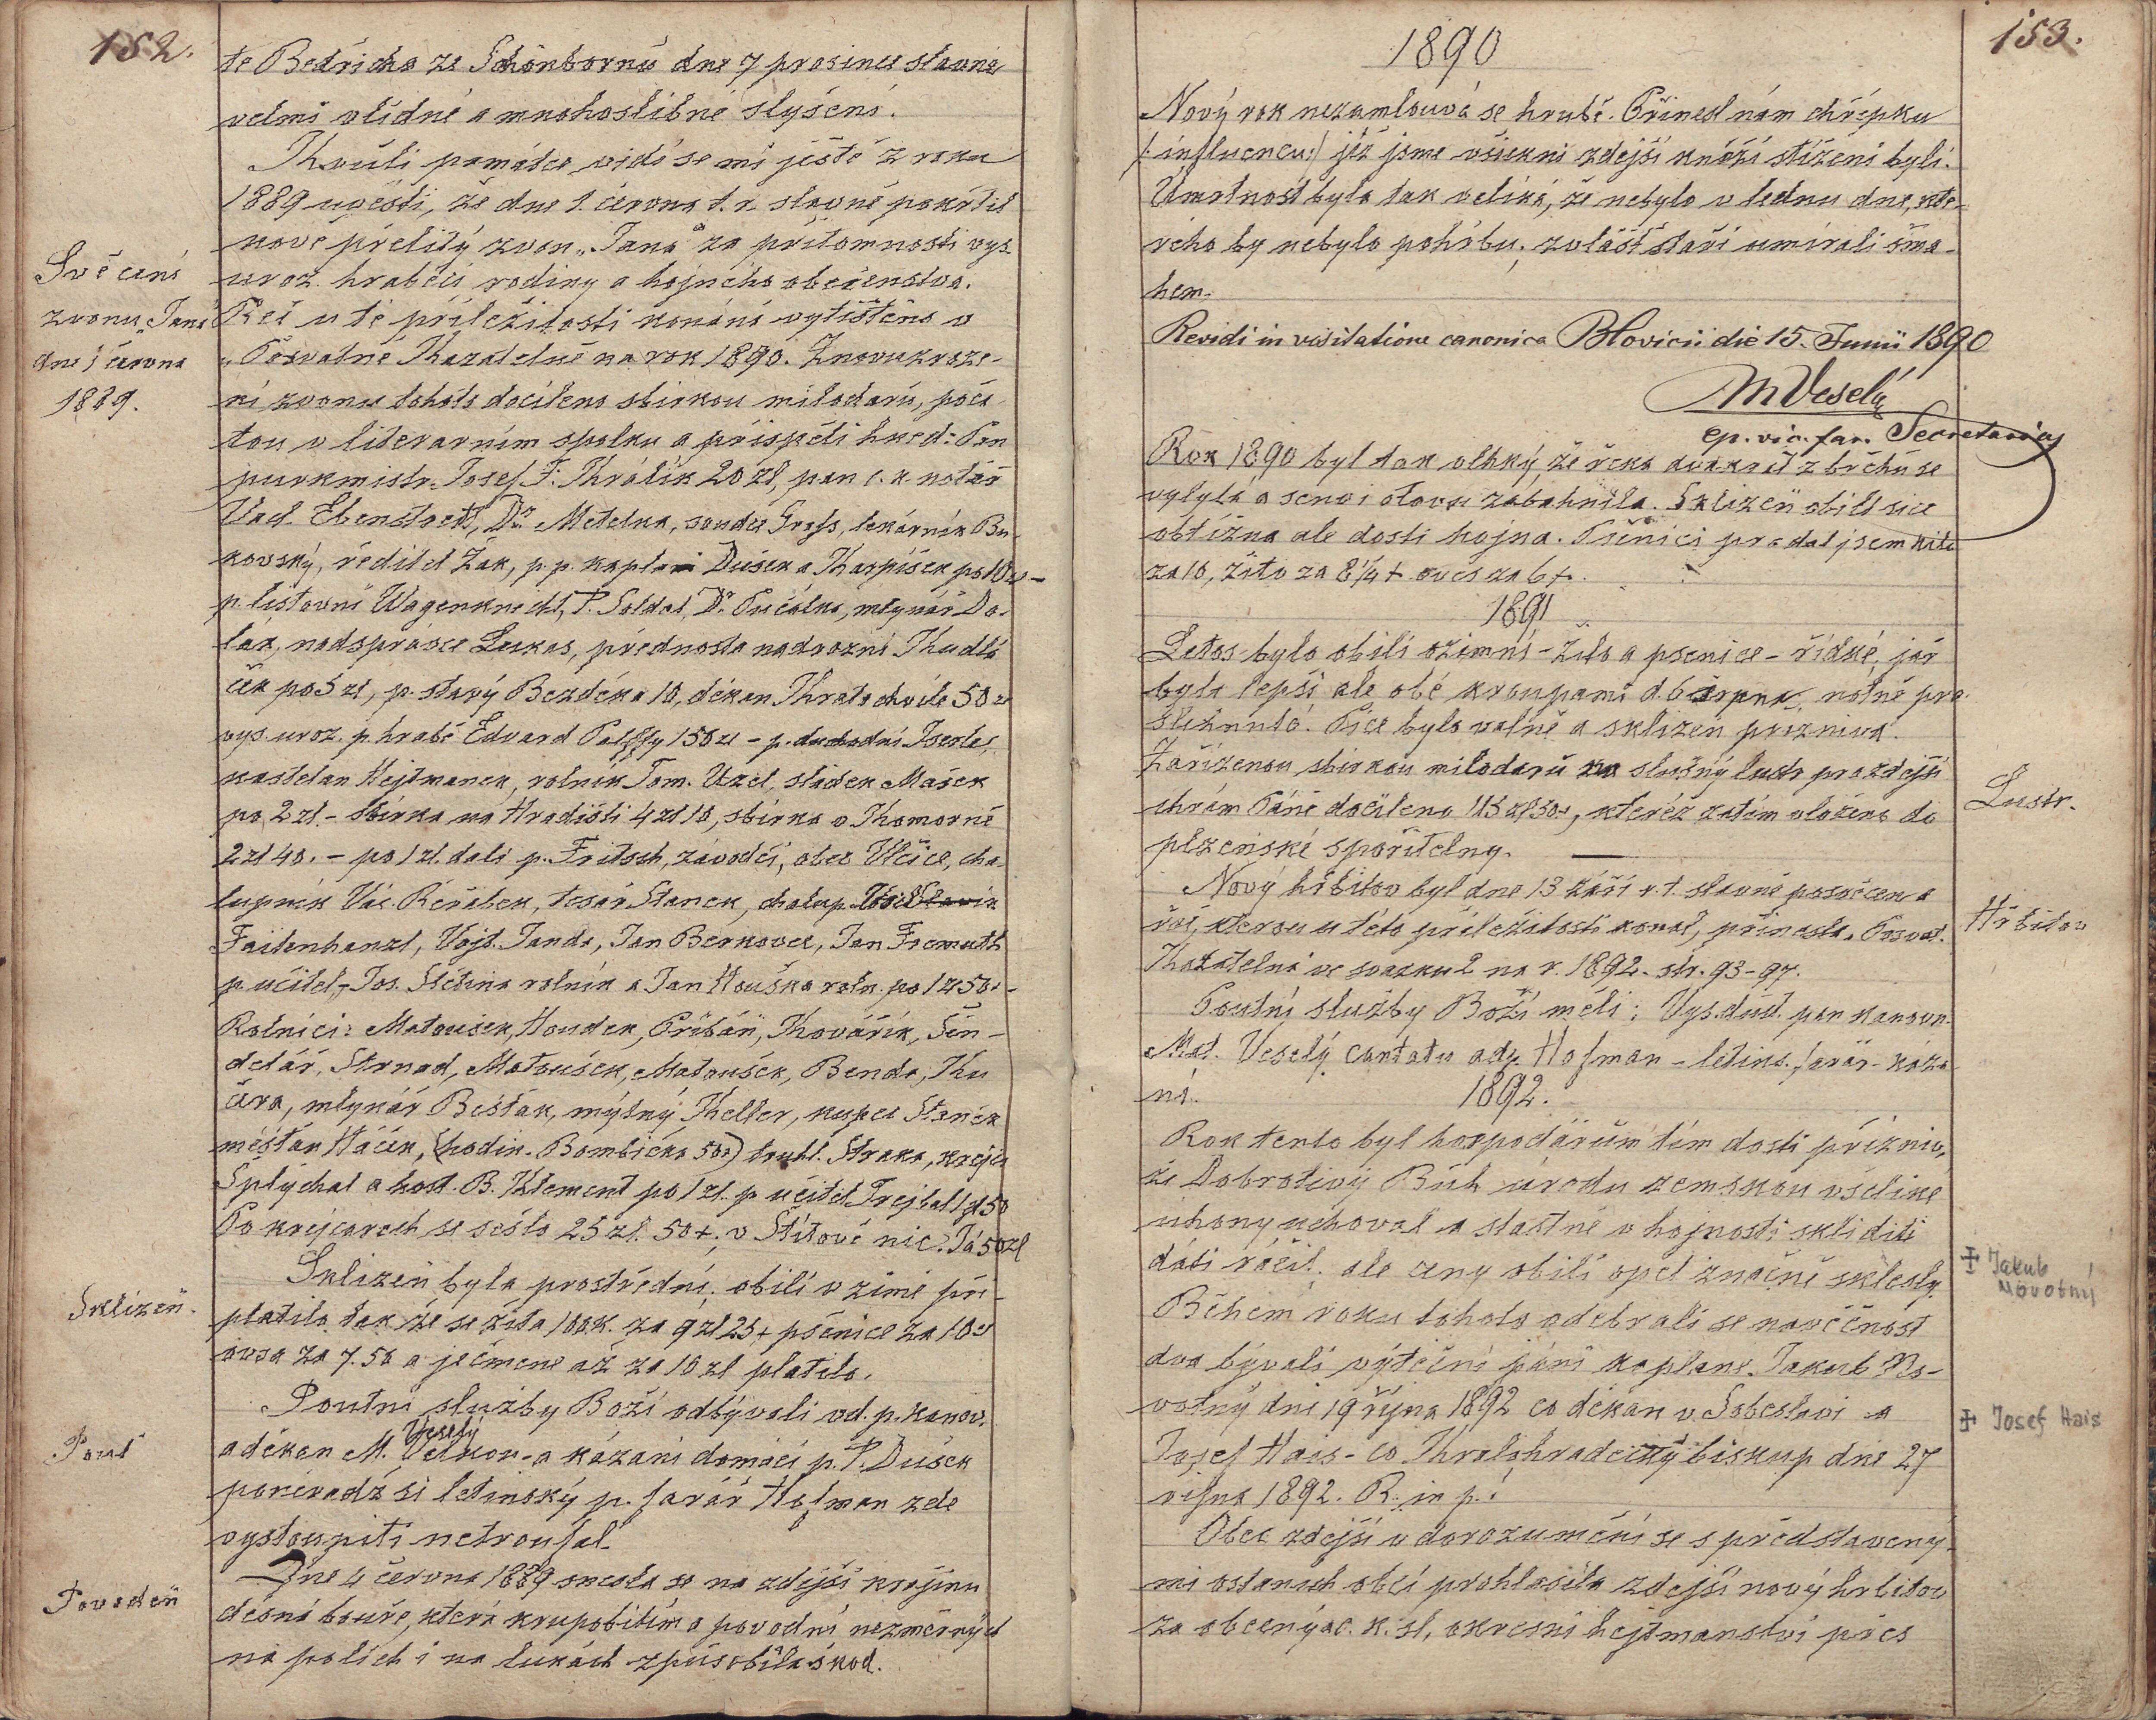 152.
te Bedřicha ze Schönbornů dne 7 prosince slavné
velmi vlídné a mnohoslibné slyšení.
Kvůli památce vidí se mi ještě z roku
1889 uvésti, že dne 1. června t. r. slavně pokřtil
nově přelitý zvon „Jana" za přítomnosti vys.
uroz. hraběcí rodiny a hojného obecenstva.
Svěcení
zvonu „Jana"
dne 1 června
1889.
Řeč u té příležitosti konána vytištěna v
„Posvatné Kazatelně na rok 1890. Znovuzroze-
ní zvonu tohoto docíleno sbírkou milodarů, poča-
tou v literarním spolku a přispěli hned: Pan
purkmistr Josef F. Králík 20 zl, pan c. k. notář
Vacl. Ebenstreit, Dr. Metelka, soudce Gross, lekárník Bu-
kovský, ředitel Žák, p. p. kaplani Dušek a Karpíšek po 10 zl -
p. listovní Wagenknecht, P. Soldat, Dr. Pučálka, mlynář Do-
lak, nadsprávce Lukas, přednosta nadrazní Kudla-
ček po 5 zl, p. starý Bezděka 10, děkan Kratochvíle 50 zl
vys. uroz. p. hrabě Edvard Palffy 150 zl - p. duchodní Iserle,
kastelan Hejtmanek, rolník Tom. Uzel, sládek Mašek
po 2 zl. - sbírka na Hradišti 4 zl 10, sbírka v Komorně
2 zl 40. - po 1 zl. dali p. Fritsch, závodčí, obec Vlčice, cha-
lupník Vác. Réřabek, tesař Stanek, chalup.
Faitenhanzl, Vojt. Janda, Jan Berkovec, Jan Fremuth
p. učitel, Jos. Štětina rolník a Jan Houška roln. po 1 zl 50 -
Rolníci: Matoušek, Houdek, Pribáň, Kovářík, Šin-
delář, Strnad, Matoušek, Matoušek, Benda, Ku
čera, mlynář Bešťák, mýtný Keller, kupec Stanek
měšťan Háček, (hodin. Bombička 50) truhl. Straka, krejčí
Šplýchal a host. B. Klement po 1 zl. p. učitel Trejbal 1 zl 50
Po krejcarech se sešlo 25 zl. 50 +. v Štítově nic. Já 50 zl
Sklizeň.
Sklizeň byla prostřední; obilí v zimě při-
platilo tak že se žita 100 K. za 9 zl 25 + pšenice za 10 zl
ovsa za 7. 50 a ječmene až za 10 zl platilo.
Pouť
Poutní služby Boží odbývali vd. p. kanov.
Veselý
a děkan M. - a kázaní domácí p. P. Dušek
poněvadž si letinský p. farář Hofman zde
vystoupiti netroufal.
Povodeň
Dne 4 června 1889 snesla se na zdejší krajinu
děsná bouře, která krupobitím a povodní nezměrných
na polích i na lukách způsobila škod.
153.
1890
Nový rok nezamlouvá se hrubě. Přinesl nám chřipku
/: influencu :/ jíž jsme všickni zdejší kněží stíženi byli.
Úmrtnost byla tak veliká, že nebylo v lednu dne, kte-
rého by nebylo pohřbu; zvlášť staří umírali šma-
hem.
Revidi in visitatione canonica Blovicii die 15. Junii 1890
M Veselý
ep. vic. for. Secretarius
Rok 1890 byl tak vlhký že řeka dvakrát z břehů se
vylyla a seno i otavu zabahnila. Sklizeň obilí sice
obtížna ale dosti hojna. Pšenici prodal jsem kilo
za 10, žito za 8 1/4 +. oves za 6 +.
1891
Letos bylo obilí ozimní - žito a psenice - řídké, jař
byla lepší ale obé kroupami d. 6 srpna notně pro-
šlehnuto. Píce bylo valně a sklizeň přiznivá.
Zařízenou sbírkou milodarů na slušný lustr pro zdejší
chrám Páně docíleno 115 zl 50, kteréž zatím vloženo do
plzeňské spořitelny.
Lustr.
Nový hřbitov byl dne 13 září r. t. slavně posvěcen a
řeč, kterou u této příležitosti konal, přinesla „Posvat.
Kazatelna" ve svazku 2 na r. 1892. str. 93-97.
Hřbitov
Poutní služby Boží měli: Vys. důst. pan kanovn.
Mat. Veselý cantatu adp. Hofman - letins. farář - káza-
ní.
1892.
Rok tento byl hospodářům tím dosti příznív,
že Dobrotivý Bůh úrodu zemskou všeliké
uhony uchoval a stastně v hojnosti sklidili
dáti ráčil; ale ceny obilí opet značně sklesly.
Během roku tohoto odebrali se na věčnost
dva bývalí výteční páni kaplane. Jakub No-
votný dni 19 října 1892 co děkan v Soběslavi a
Josef Hais - co Kralohradecký biskup dne 27
října 1892. R. in p.!
‡ Jakub
Novotný
‡ Josef Hais
Obec zdejší v dorozumění se s představený-
mi ostaních obcí prohlásila zdejší nový hrbitov
za obecný a c. k. sl. okresní hejtmanství přes